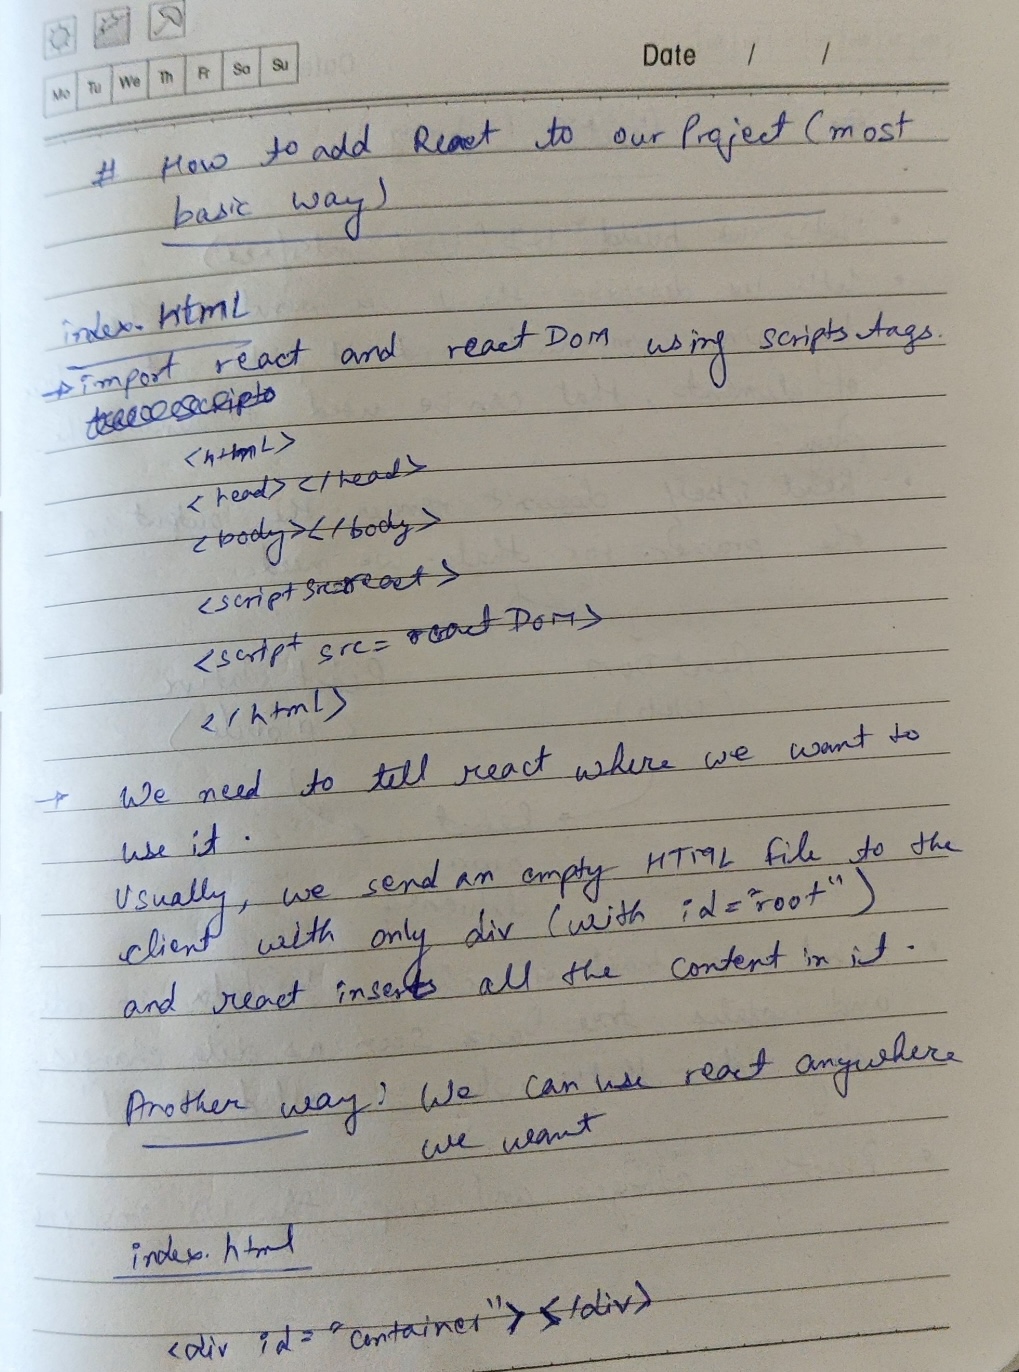 Mo Tu We Th Fr Sa Su
Date / /
# How to add React to our Project (most
basic way)
index.html
→ import react and react DOM using scripts tags.
<html>
<head></head>
<body></body>
<script src=react>
<script src= react DOM>
</html>
→ We need to tell react where we want to
use it.
Usually, we send an empty HTML file to the
client with only div (with id="root")
and react inserts all the content in it.
Another way: We can use react anywhere
we want
index.html
<div id="container"></div>